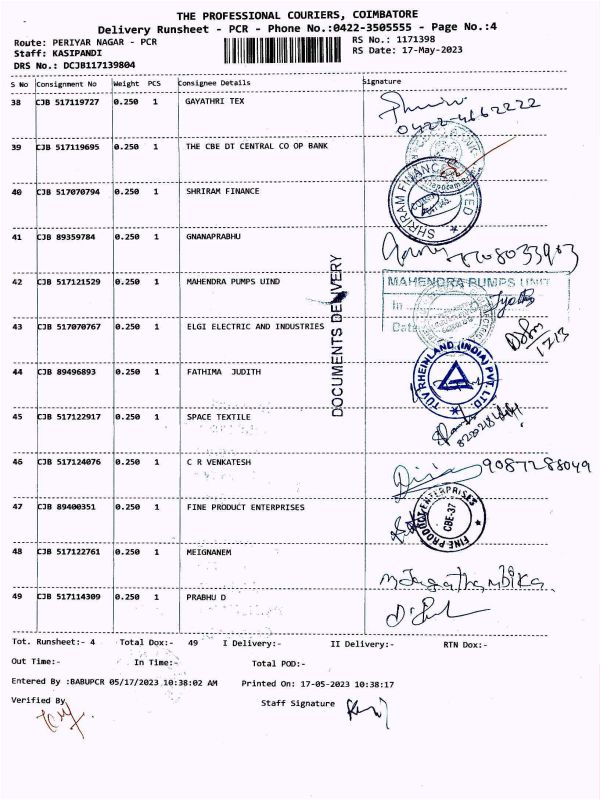 THE PROFESSIONAL COURIERS, COIMBATORE
Delivery Runsheet - PCR - Phone No.:0422-3505555 - Page No.:4
Route: PERIYAR NAGAR - PCR
RS No.: 1171398
Staff: KASIPANDI
RS Date: 17-May-2023
DRS No.: DCJB117139804
S No Consignment No Weight PCS Consignee Details Signature
38 CJB 517119727 0.250 1 GAYATHRI TEX
0422-4662222
39 CJB 517119695 0.250 1 THE CBE DT CENTRAL CO OP BANK
40 CJB 517070794 0.250 1 SHRIRAM FINANCE
SHRIRAM FINANCE LIMITED
41 CJB 89359784 0.250 1 GNANAPRABHU
42 CJB 517121529 0.250 1 MAHENDRA PUMPS UIND
MAHENDRA PUMPS UNIT
In
Date
43 CJB 517070767 0.250 1 ELGI ELECTRIC AND INDUSTRIES
1713
DOCUMENTS DELIVERY
44 CJB 89496893 0.250 1 FATHIMA JUDITH
TUV RHEINLAND (INDIA) PVT. LTD.
45 CJB 517122917 0.250 1 SPACE TEXTILE
46 CJB 517124076 0.250 1 C R VENKATESH
9087288049
47 CJB 89400351 0.250 1 FINE PRODUCT ENTERPRISES
FINE PRODUCT ENTERPRISES
CBE-37
48 CJB 517122761 0.250 1 MEIGNANEM
49 CJB 517114309 0.250 1 PRABHU D
Tot. Runsheet:- 4 Total Dox:- 49 I Delivery:- II Delivery:- RTN Dox:-
Out Time:- In Time:- Total POD:-
Entered By :BABUPCR 05/17/2023 10:38:02 AM Printed On: 17-05-2023 10:38:17
Verified By Staff Signature